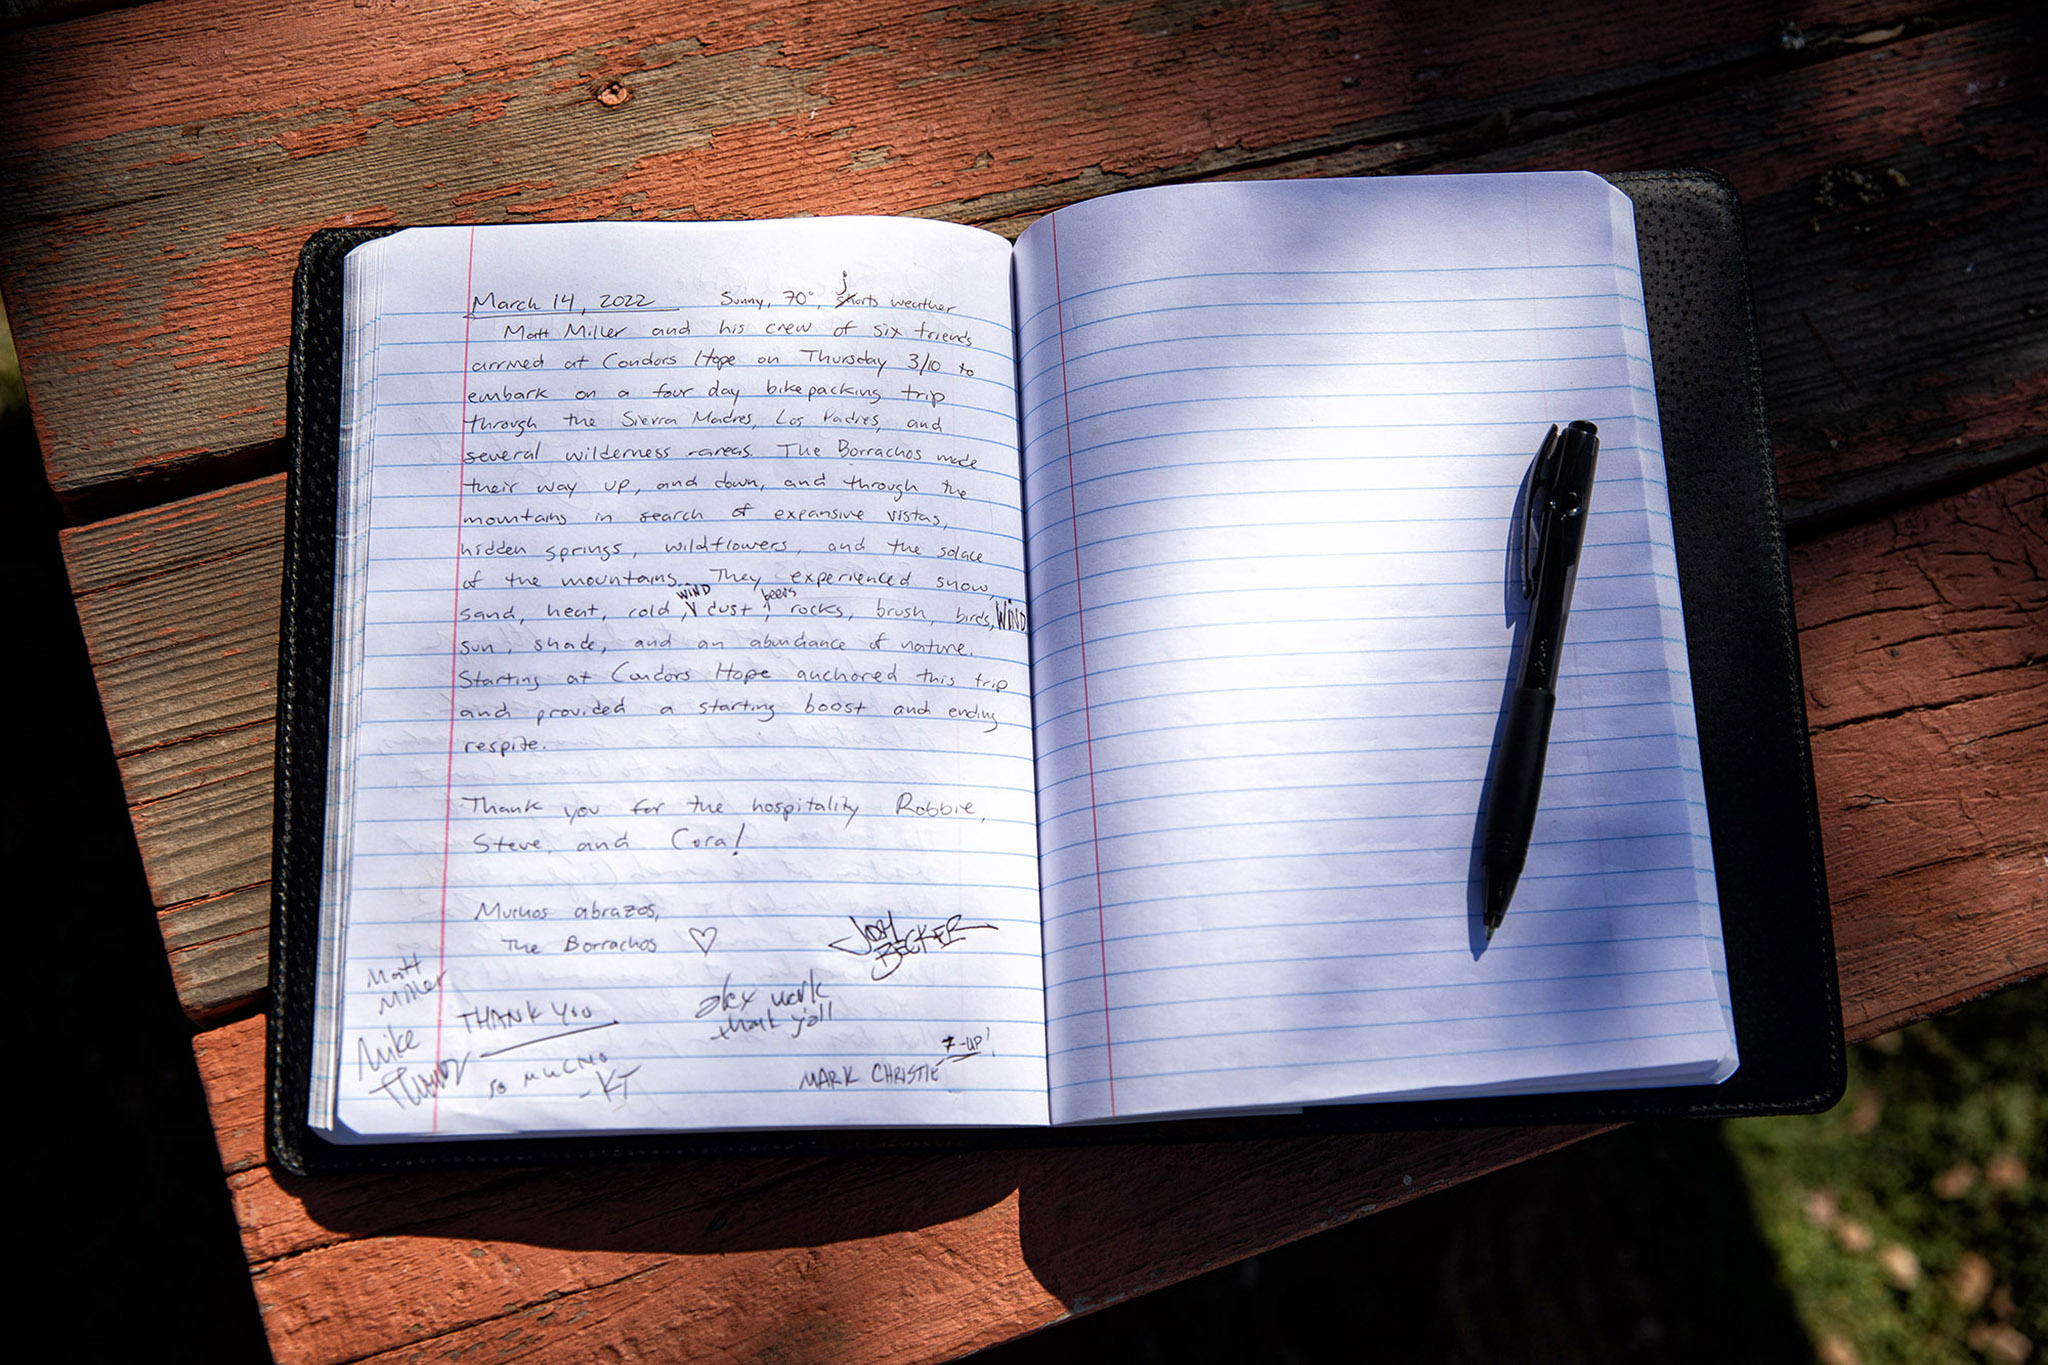 March 14, 2022 Sunny, 70°, jorts weather
Matt Miller and his crew of six friends
arrived at Condors Hope on Thursday 3/10 to
embark on a four day bikepacking trip
through the Sierra Madres, Los Padres, and
several wilderness areas. The Borrachos made
their way up, and down, and through the
mountains in search of expansive vistas,
hidden springs, wildflowers, and the solace
of the mountains. They experienced snow,
sand, heat, cold, WIND dust, beers rocks, brush, birds, WIND
sun, shade, and an abundance of nature.
Starting at Condors Hope anchored this trip
and provided a starting boost and ending
respite.
Thank you for the hospitality Robbie,
Steve, and Cora!
Muchos abrazos,
The Borrachos ♡
JOSH
BECKER
Matt
Miller
THANK YOU
SO MUCHO
-KT
alex
thank y'all
Mike
7-UP!
MARK CHRISTIE